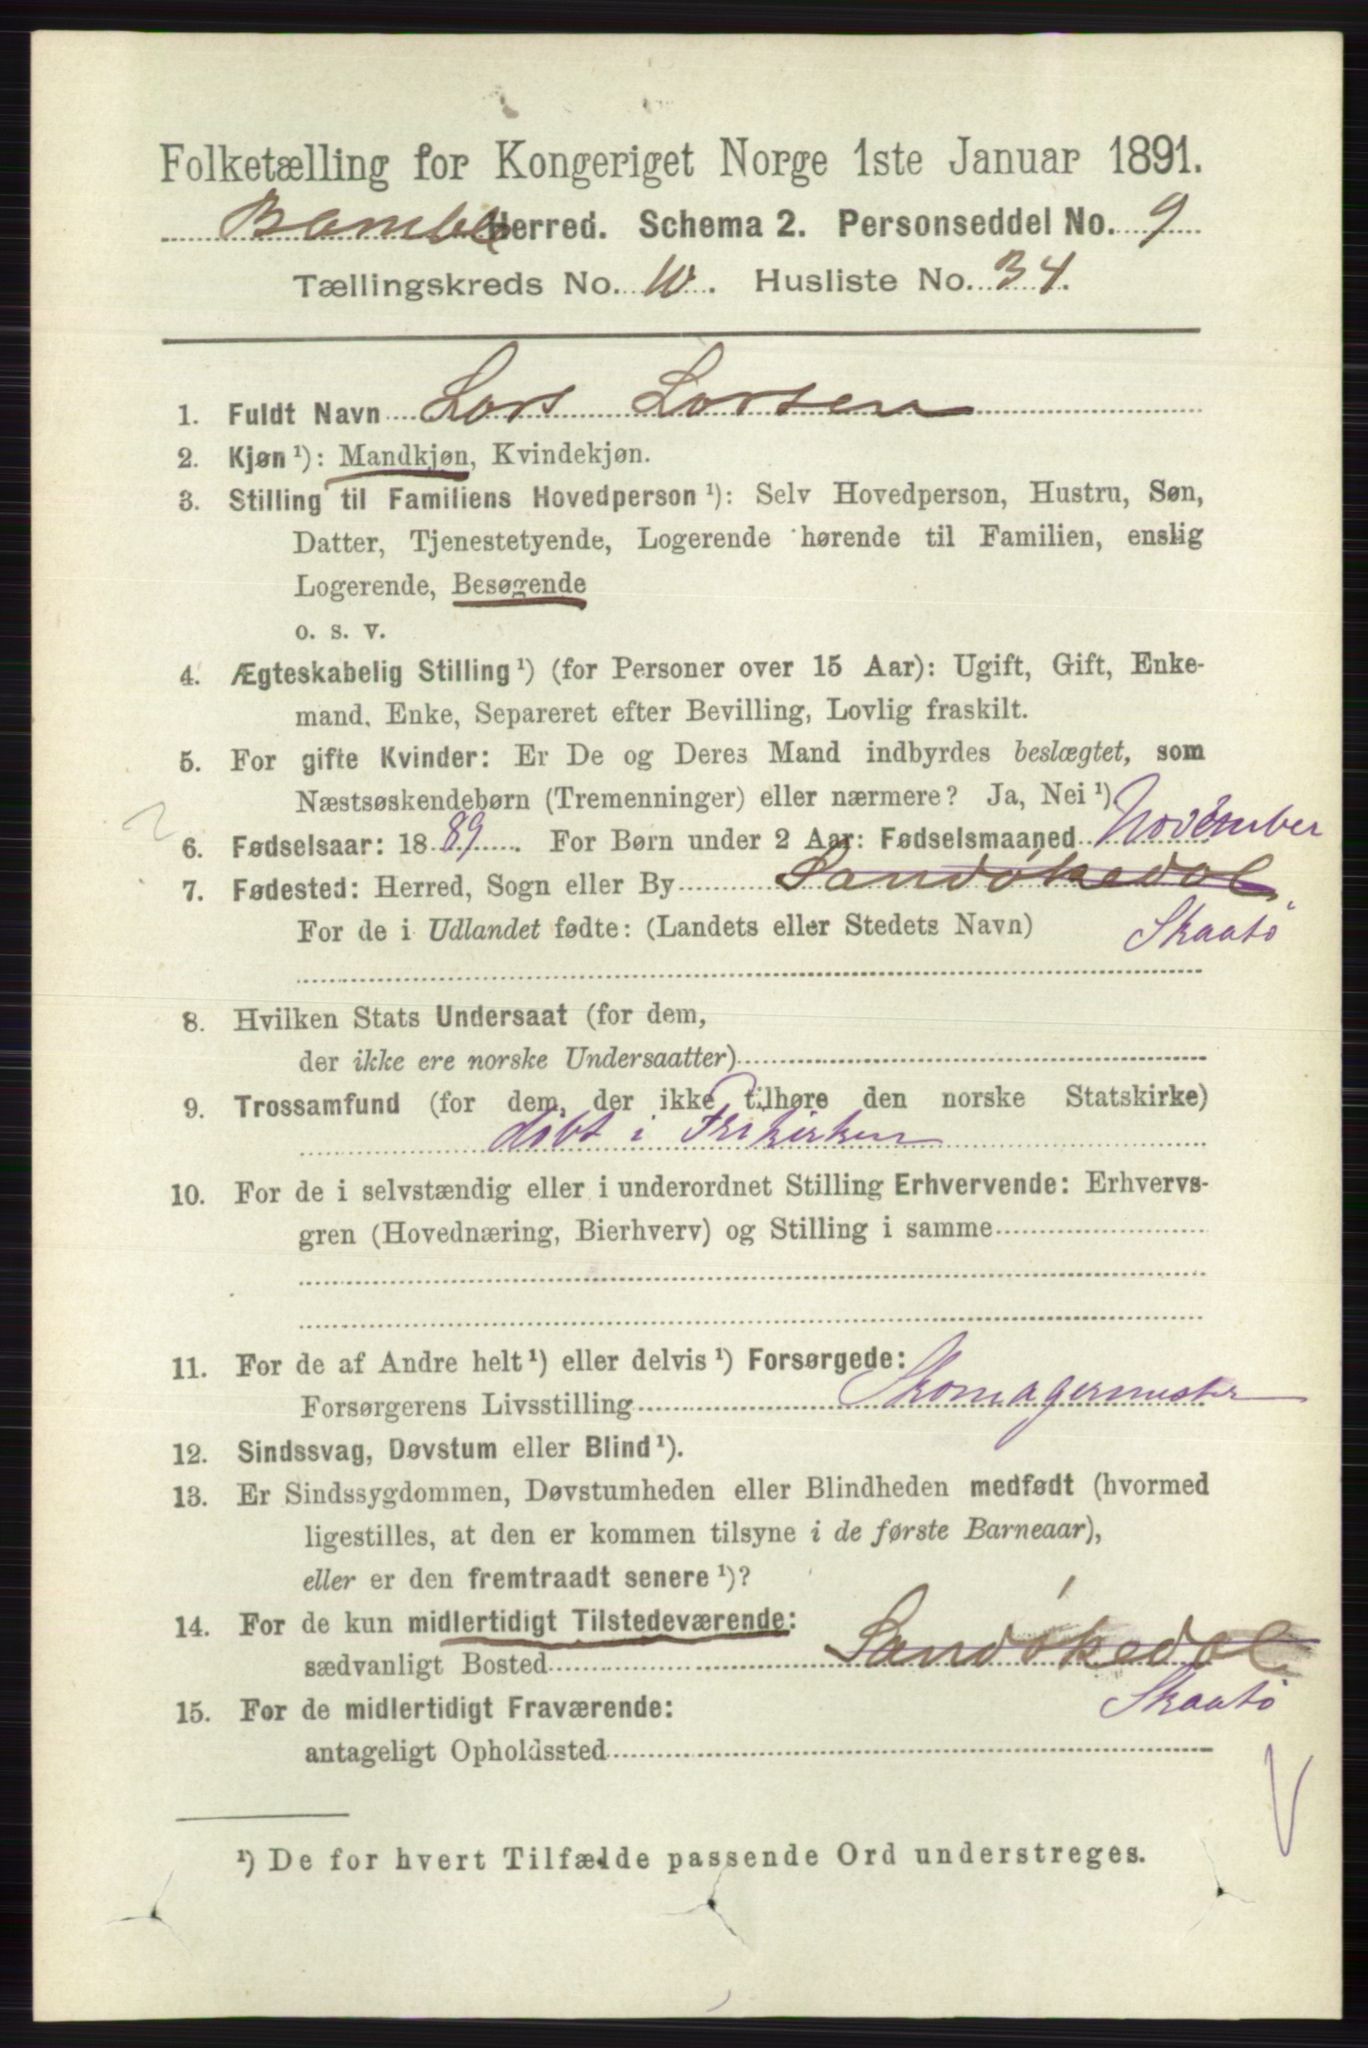 Folketælling for Kongeriget Norge 1ste Januar 1891.
Bamble Herred. Schema 2. Personseddel No. 9
Tællingskreds No. 10. Husliste No. 34.
1. Fuldt Navn Lars Larsen
2. Kjøn ¹): Mandkjøn, Kvindekjøn.
3. Stilling til Familiens Hovedperson ¹): Selv Hovedperson, Hustru, Søn,
Datter, Tjenestetyende, Logerende hørende til Familien, enslig
Logerende, Besøgende
o. s. v.
4. Ægteskabelig Stilling ¹) (for Personer over 15 Aar): Ugift, Gift, Enke-
mand, Enke, Separeret efter Bevilling, Lovlig fraskilt.
5. For gifte Kvinder: Er De og Deres Mand indbyrdes beslægtet, som
Næstsøskendebørn (Tremenninger) eller nærmere? Ja, Nei ¹)
6. Fødselsaar: 1889. For Børn under 2 Aar: Fødselsmaaned November
7. Fødested: Herred, Sogn eller By Sandøkedal
For de i Udlandet fødte: (Landets eller Stedets Navn) Skaatø
8. Hvilken Stats Undersaat (for dem,
der ikke ere norske Undersaatter)
9. Trossamfund (for dem, der ikke tilhøre den norske Statskirke)
døbt i Frikirken
10. For de i selvstændig eller i underordnet Stilling Erhvervende: Erhvervs-
gren (Hovednæring, Bierhverv) og Stilling i samme
11. For de af Andre helt ¹) eller delvis ¹) Forsørgede:
Forsørgerens Livsstilling Skomagermester
12. Sindssvag, Døvstum eller Blind ¹).
13. Er Sindssygdommen, Døvstumheden eller Blindheden medfødt (hvormed
ligestilles, at den er kommen tilsyne i de første Barneaar),
eller er den fremtraadt senere ¹)?
14. For de kun midlertidigt Tilstedeværende:
sædvanligt Bosted Sandøkedal
Skaatø
15. For de midlertidigt Fraværende:
antageligt Opholdssted
¹) De for hvert Tilfælde passende Ord understreges.